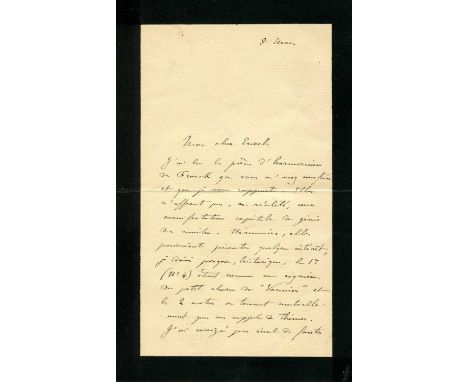 8
Mon cher Enoch
J'ai lu la pièce d'harmonium
de Franck que vous m'avez confiée
et que je vous rapporte. Elles
n'offrent pas, en réalité, une
manifestation capitale du génie
du maître. Néanmoins, elles
pourraient présenter quelque intérêt,
je dirai presque, historique, la 1re
(No 4) étant comme une esquisse
du petit chœur de " " et
les 2 autres se tenant mutuelle-
ment par un rappel de thèmes.
J'ai corrigé pas mal de fautes